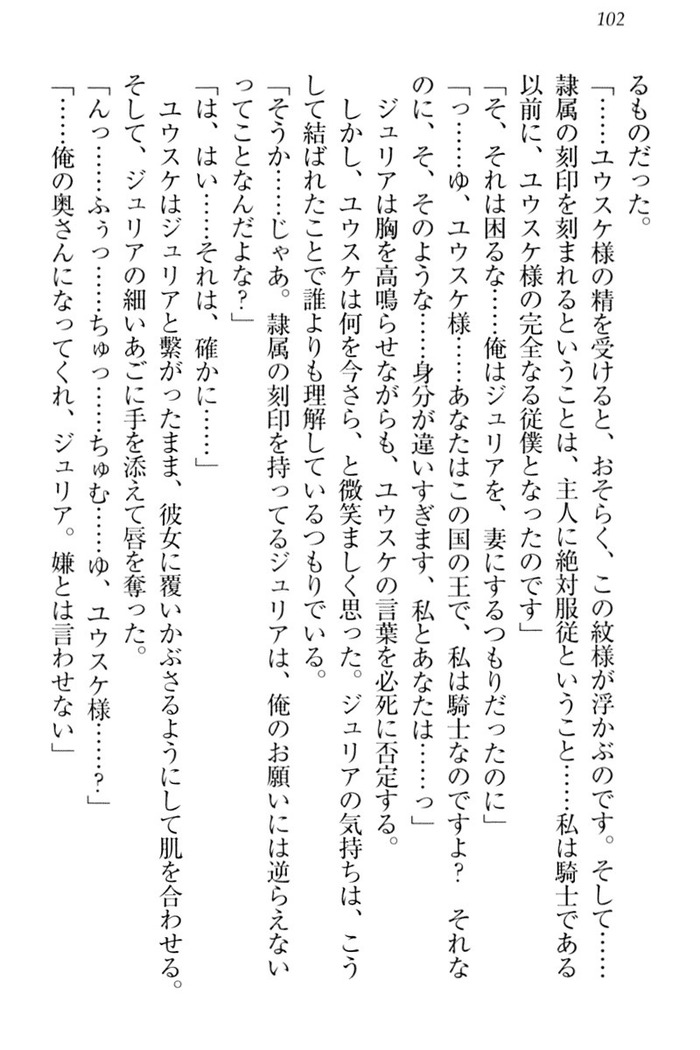 102
るものだった。
「……ユウスケ様の精を受けると、おそらく、この紋様が浮かぶのです。そして……
隷属の刻印を刻まれるということは、主人に絶対服従ということ……私は騎士である
以前に、ユウスケ様の完全なる従僕となったのです」
「そ、それは困るな……俺はジュリアを、妻にするつもりだったのに」
「っ……ゆ、ユウスケ様……あなたはこの国の王で、私は騎士なのですよ？　それな
のに、そ、そのような……身分が違いすぎます、私とあなたは……っ」
ジュリアは胸を高鳴らせながらも、ユウスケの言葉を必死に否定する。
しかし、ユウスケは何を今さら、と微笑ましく思った。ジュリアの気持ちは、こう
して結ばれたことで誰よりも理解しているつもりでいる。
「そうか……じゃあ。隷属の刻印を持ってるジュリアは、俺のお願いには逆らえない
ってことなんだよな？」
「は、はい……それは、確かに……」
ユウスケはジュリアと繋がったまま、彼女に覆いかぶさるようにして肌を合わせる。
そして、ジュリアの細いあごに手を添えて唇を奪った。
「んっ……ふぅっ……ちゅっ……ちゅむ……ゆ、ユウスケ様……？」
「……俺の奥さんになってくれ、ジュリア。嫌とは言わせない」